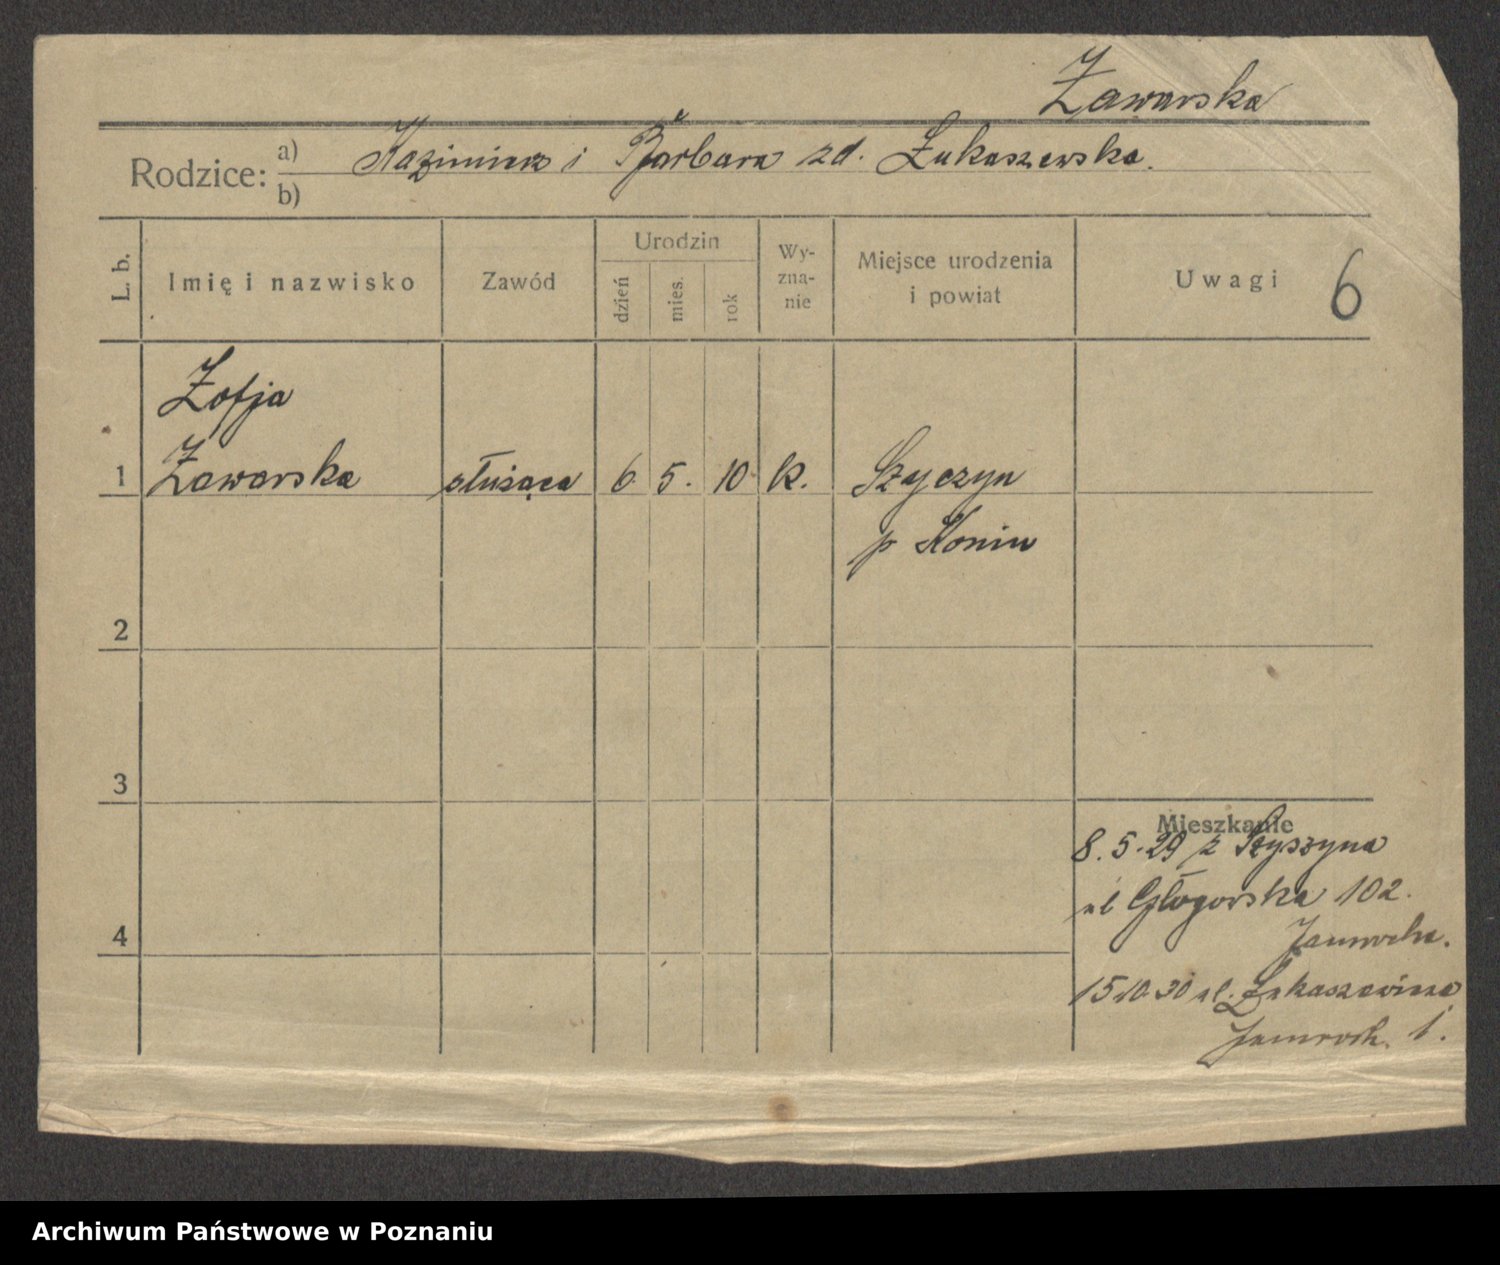 Zawarska
Rodzice: a) Kazimierz i Barbara zd. Łukaszewska.
b)
L. b. Imię i nazwisko Zawód Urodzin dzień mies. rok Wy-zna-nie Miejsce urodzenia i powiat Uwagi 6
Zofja
1 Zawarska służąca 6 5. 10 k. Szyczyn
p Konin
2
3
Mieszkanie
8.5.29 z Szyszyna
ul Głogowska 102.
4
15.10.30 ul. Łukaszewicza
1.
Archiwum Państwowe w Poznaniu